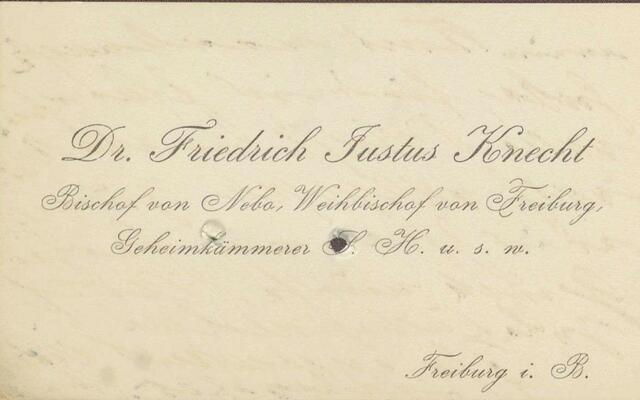 Dr. Friedrich Justus Knecht
Bischof von Nebo, Weihbischof von Freiburg,
Geheimkämmerer S. H. u. s. w.
Freiburg i. B.